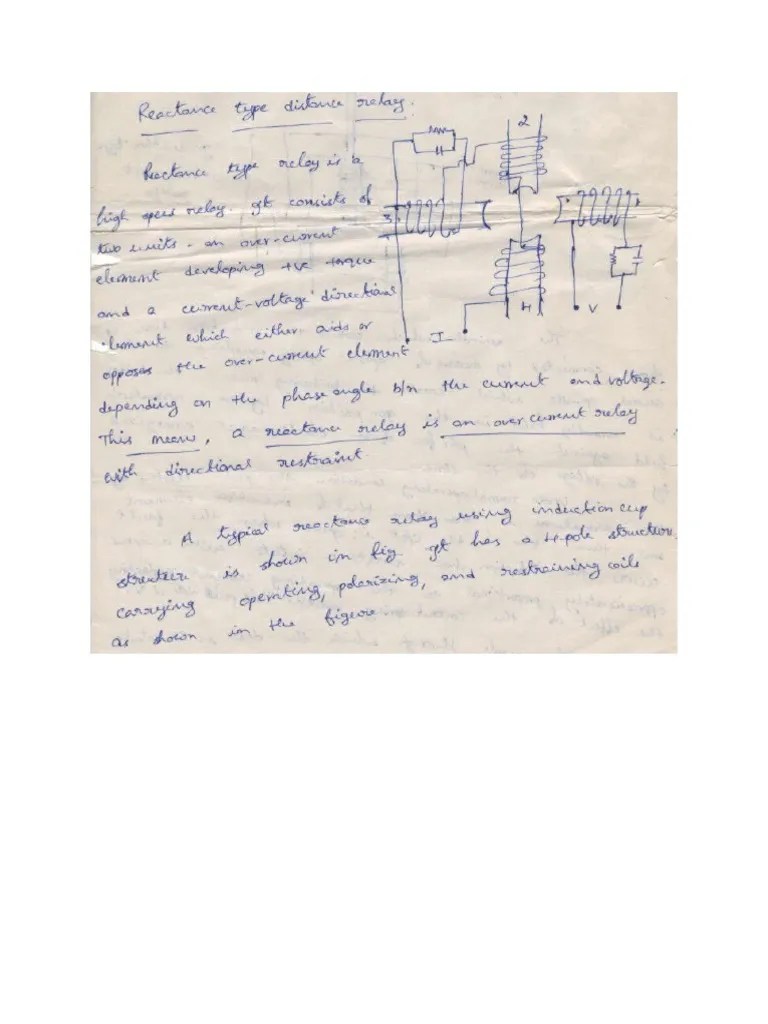 Reactance type distance relay.
Reactance type relay is a
high speed relay. It consists of
two units - an over-current
element developing +ve torque
and a current-voltage directional
element which either aids or
opposes the over-current element
depending on the phase angle b/n the current and voltage.
This means, a reactance relay is an over current relay
with directional restraint.
A typical reactance relay using induction cup
structure is shown in fig. It has a 4-pole structure
carrying operating, polarizing, and restraining coils
as shown in the figure.
2
3
4
I
V